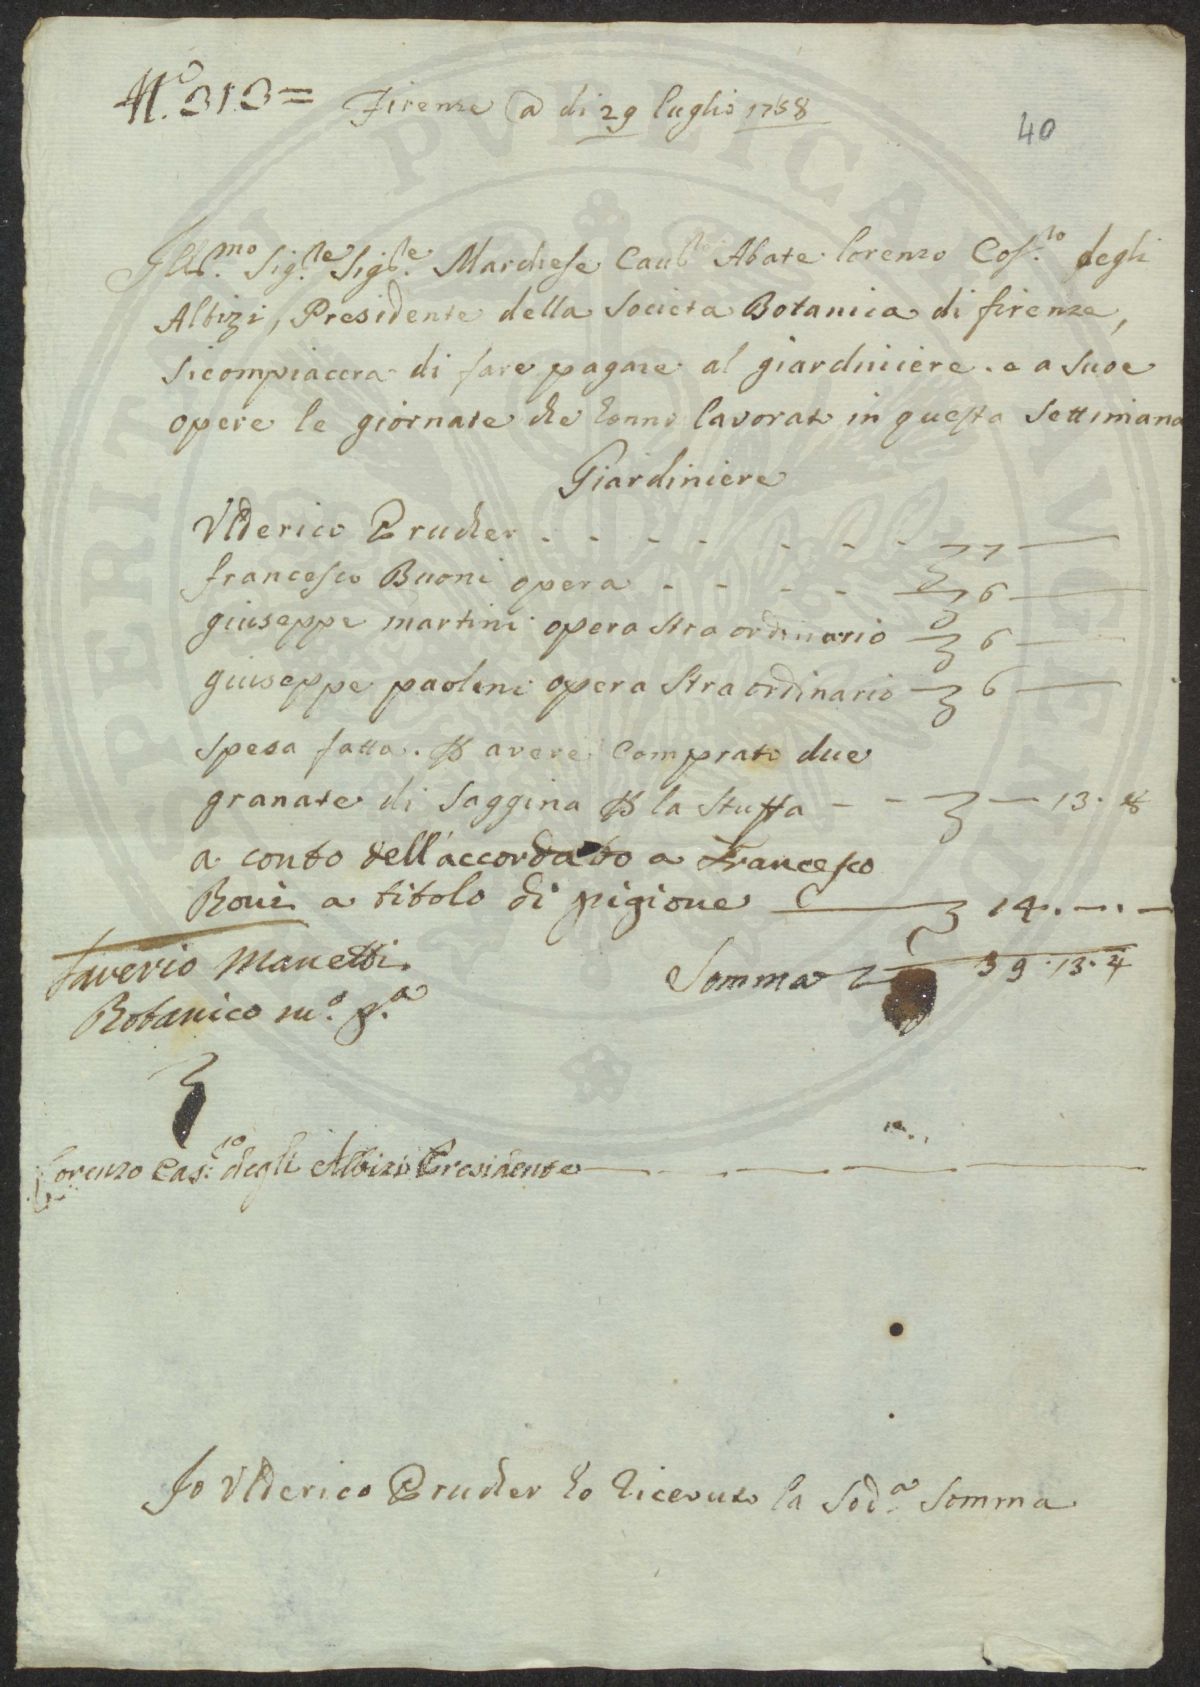 N.o 313=
Firenze a di 29 luglio 1758
40
Ill.mo Sig.re Sig.re Marchese Caul.re Abate lorenzo Cos.mo degli
Albizi, Presidente della Societa Botanica di firenze,
si compiacera di fare pagare al giardiniere. e a sue
opere le giornate che hanno lavorato in questa Settimana
Giardiniere
Ulderico Prucher - - - - - - - £ 7 —
francesco Buoni opera - - - - £ 6 —
giuseppe martini opera straordinario £ 6 —
giuseppe paolini opera straordinario £ 6 —
spesa fatta. p avere Comprato due
granate di Saggina p la Stuffa - - £ — 13. 8
a conto dell'accordato a Francesco
Boni a titolo di pigione — £ 14. —. —
Saverio Manetti
Botanico m.o p.a
Somma £ 39. 13. 4
Lorenzo Cas.o degli Albizi Presidente
Io Ulderico Prucher ho riceuuto la Sod.a Somma